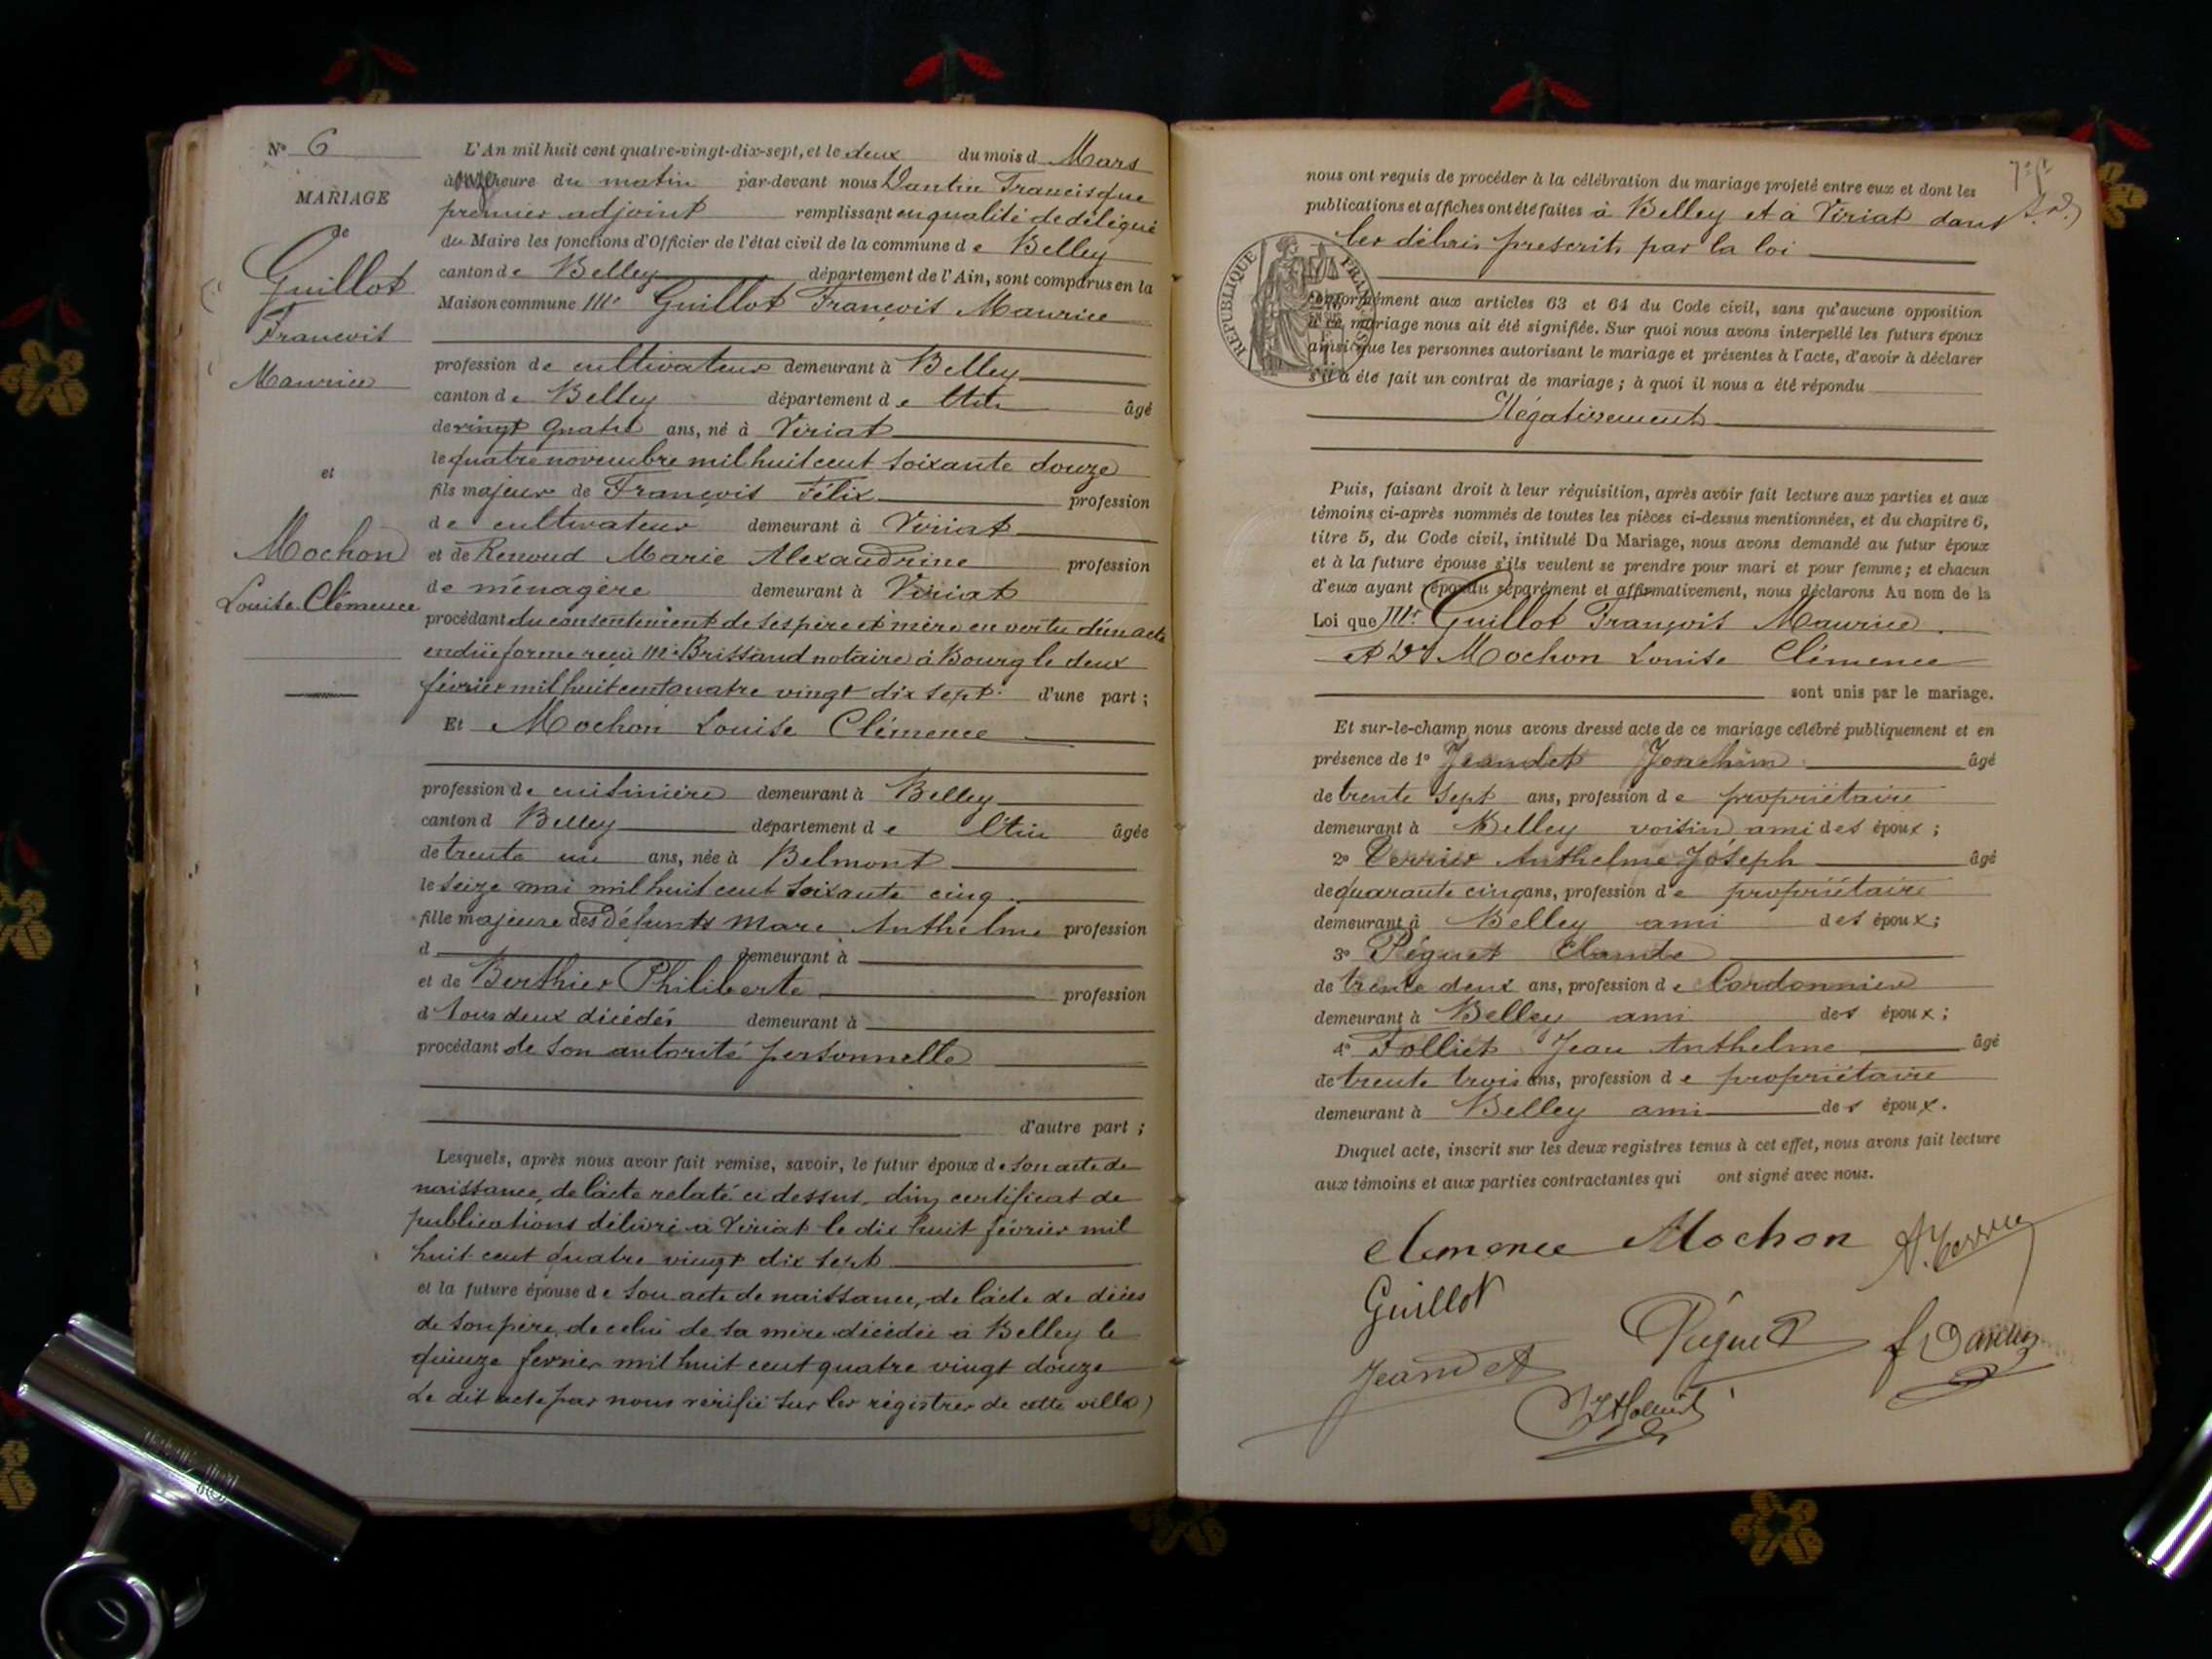 N° 6
MARIAGE
de
Guillot
François
Maurice
et
Mochon
Louise Clémence
L'An mil huit cent quatre-vingt-dix-sept, et le deux du mois d Mars
heure du matin par-devant nous Dantin Francisque
premier adjoint remplissant en qualité de délégué
du Maire les fonctions d'Officier de l'état civil de la commune de Belley
canton de Belley département de l'Ain, sont comparus en la
Maison commune Mr Guillot François Maurice
profession de cultivateur demeurant à Belley
canton de Belley département de l'Ain âgé
de vingt quatre ans, né à Viriat
le quatre novembre mil huit cent soixante douze
fils majeur de François Félix profession
de cultivateur demeurant à Viriat
et de Renoud Marie Alexandrine profession
de ménagère demeurant à Viriat
procédant du consentement de ses père et mère en vertu d'un acte
en due forme reçu Me Brissaud notaire à Bourg le deux
février mil huit cent quatre vingt dix sept d'une part ;
Et Mochon Louise Clémence
profession de cuisinière demeurant à Belley
canton d Belley département de l'Ain âgée
de trente un ans, née à Belmont
le seize mai mil huit cent soixante cinq
fille majeure des défunts Marc Anthelme profession
d demeurant à
et de Berthier Philiberte profession
d tous deux décédés demeurant à
procédant de son autorité personnelle
d'autre part ;
Lesquels, après nous avoir fait remise, savoir, le futur époux de son acte de
naissance, de l'acte relaté ci dessus, d'un certificat de
publications délivré à Viriat le dix huit février mil
huit cent quatre vingt dix sept
et la future épouse de son acte de naissance, de l'acte de décès
de son père, de celui de sa mère décédée à Belley le
quinze fevrier mil huit cent quatre vingt douze
Le dit acte par nous vérifié sur les régistres de cette ville)
nous ont requis de procéder à la célébration du mariage projeté entre eux et dont les
publications et affiches ont été faites à Belley et à Viriat dans
les délais prescrits par la loi
RÉPUBLIQUE FRANÇAISE
conformément aux articles 63 et 64 du Code civil, sans qu'aucune opposition
à ce mariage nous ait été signifiée. Sur quoi nous avons interpellé les futurs époux
ainsi que les personnes autorisant le mariage et présentes à l'acte, d'avoir à déclarer
s'il a été fait un contrat de mariage ; à quoi il nous a été répondu
Négativement
Puis, faisant droit à leur réquisition, après avoir fait lecture aux parties et aux
témoins ci-après nommés de toutes les pièces ci-dessus mentionnées, et du chapitre 6,
titre 5, du Code civil, intitulé Du Mariage, nous avons demandé au futur époux
et à la future épouse s'ils veulent se prendre pour mari et pour femme ; et chacun
d'eux ayant répondu séparément et affirmativement, nous déclarons Au nom de la
Loi que Mr Guillot François Maurice
et Dlle Mochon Louise Clémence
sont unis par le mariage.
Et sur-le-champ nous avons dressé acte de ce mariage célébré publiquement et en
présence de 1° Jeandet Joachim âgé
de trente sept ans, profession de propriétaire
demeurant à Belley voisin ami des époux ;
2° Verrier Anthelme Joseph âgé
de quarante cinq ans, profession de propriétaire
demeurant à Belley ami des époux ;
3° Péguet Claude
de trente deux ans, profession de Cordonnier
demeurant à Belley ami des époux ;
4° Folliet Jean Anthelme âgé
de trente trois ans, profession de propriétaire
demeurant à Belley ami des époux.
Duquel acte, inscrit sur les deux registres tenus à cet effet, nous avons fait lecture
aux témoins et aux parties contractantes qui ont signé avec nous.
Clemence Mochon
Guillot
Péguet
Jeandet